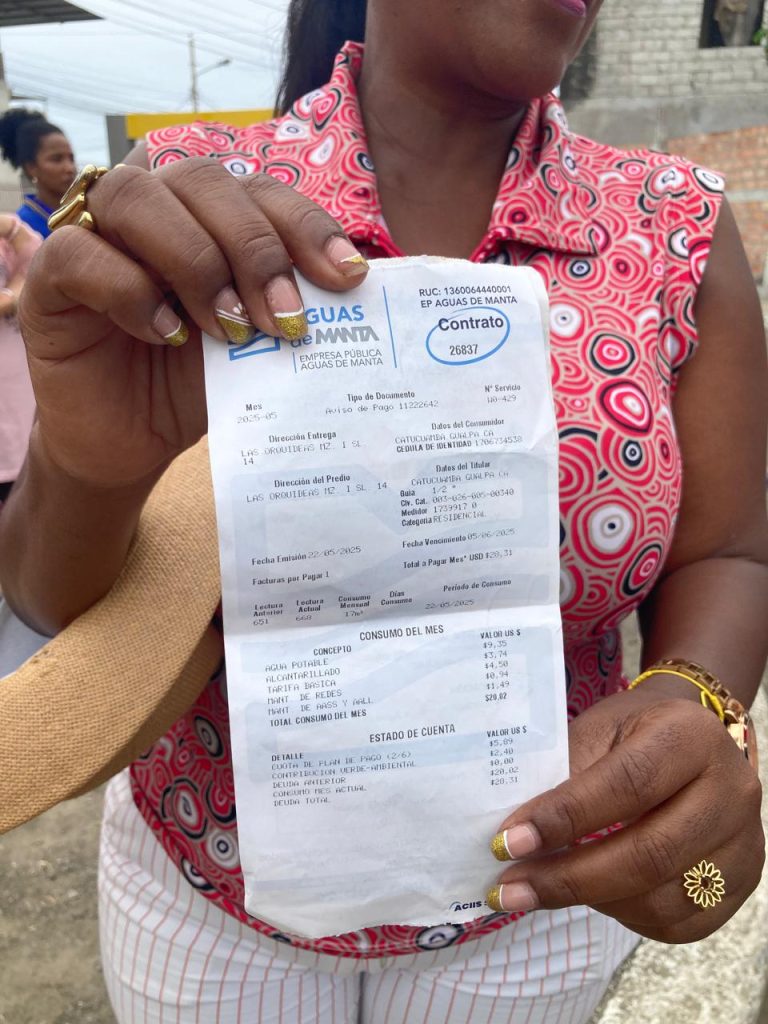 RUC: 1360064440001
EP AGUAS DE MANTA
GUAS
de MANTA
EMPRESA PÚBLICA
AGUAS DE MANTA
Contrato
26837
Mes
2025-05
Tipo de Documento
Aviso de Pago 11222642
N° Servicio
Dirección Entrega
LAS ORQUIDEAS MZ. I SL
14
Datos del Consumidor
CATUCUAMBA GUALPA CA
CEDULA DE IDENTIDAD 1706734538
Dirección del Predio
LAS ORQUIDEAS MZ. I SL 14
Datos del Titular
CATUCUAMBA GUALPA CA
Guia 1/2 "
Clv. Cat. 003-026-005-00340
Medidor 1739917 0
Categoria RESIDENCIAL
Fecha Emisión 22/05/2025
Fecha Vencimiento 05/06/2025
Facturas por Pagar 1
Total a Pagar Mes* USD $28,31
Lectura Anterior
651
Lectura Actual
668
Consumo Mensual
17m³
Días Consumo
Período de Consumo
22/05/2025
CONSUMO DEL MES
CONCEPTO VALOR US $
AGUA POTABLE $9,35
ALCANTARILLADO $3,74
TARIFA BASICA $4,50
MANT. DE REDES $0,94
MANT. DE AASS Y AALL $1,49
TOTAL CONSUMO DEL MES $20,02
ESTADO DE CUENTA
DETALLE VALOR US $
CUOTA DE PLAN DE PAGO (2/6) $5,89
CONTRIBUCION VERDE-AMBIENTAL $2,40
DEUDA ANTERIOR $0,00
CONSUMO MES ACTUAL $20,02
DEUDA TOTAL $28,31